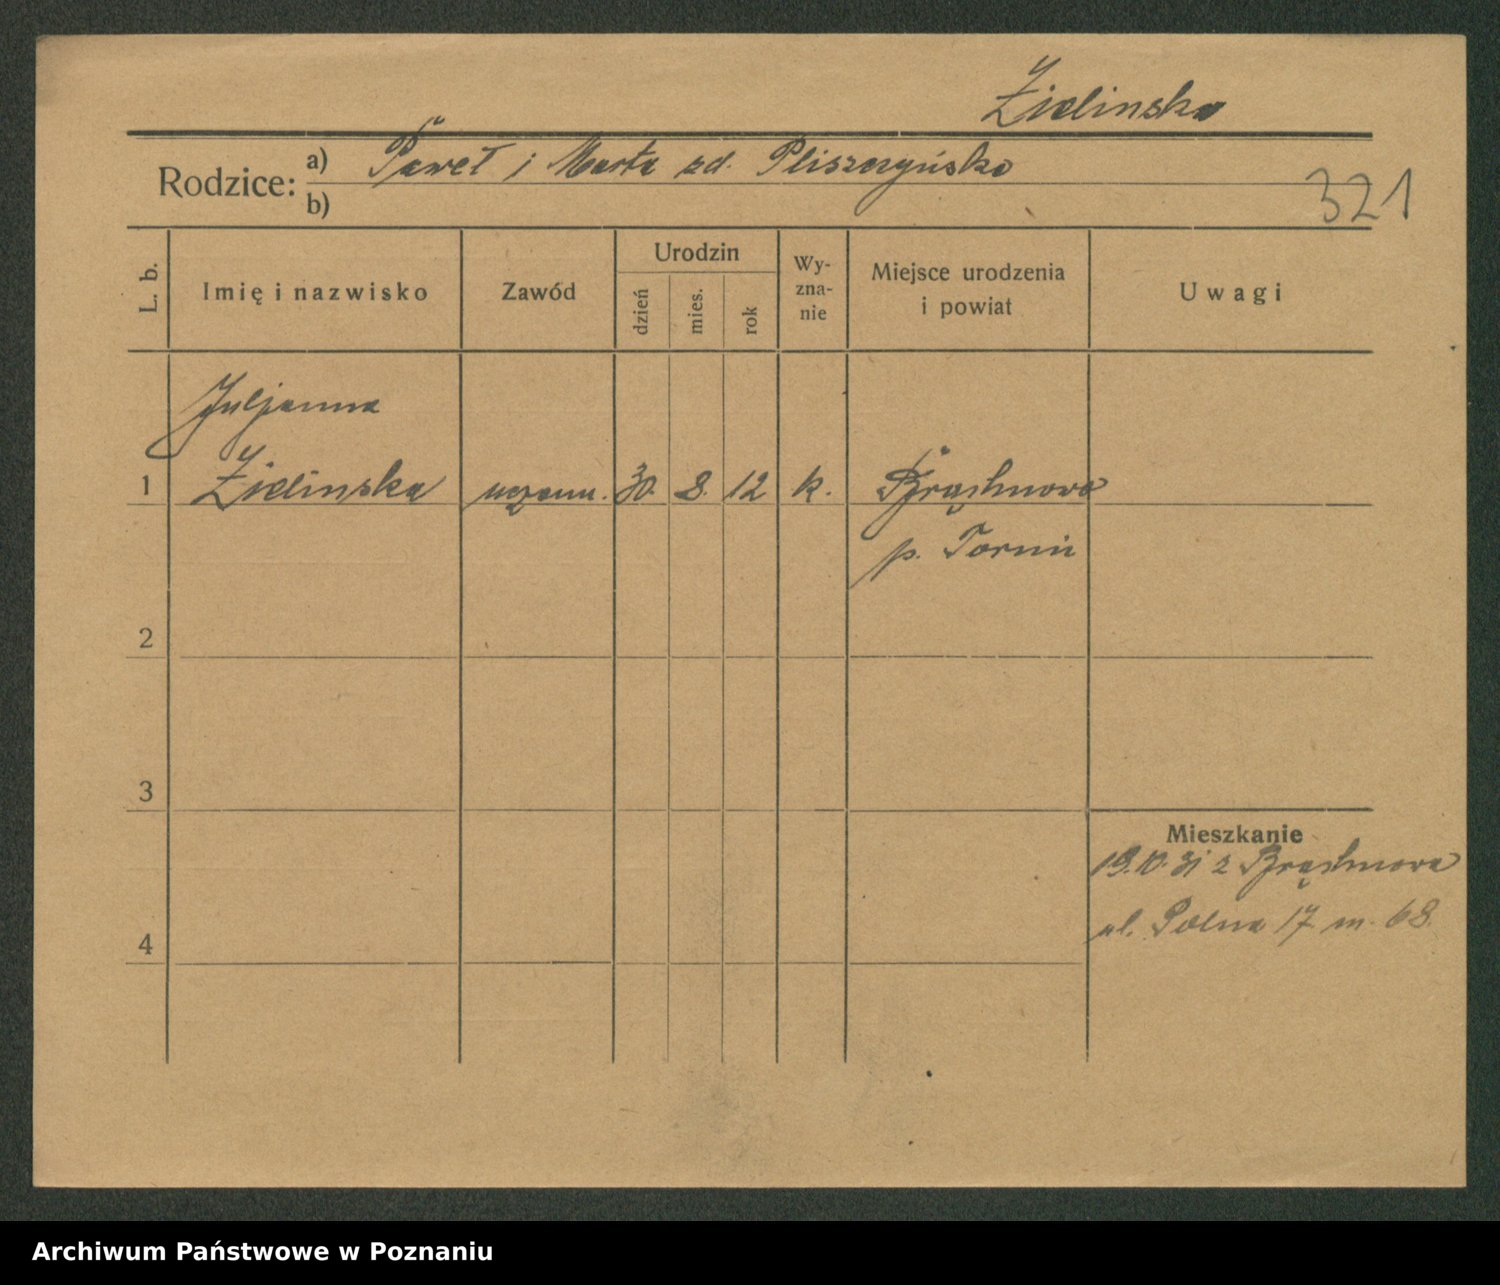 Zielinska
Rodzice: a) Paweł i Marta zd. Pliszczyńska
b)
321
L. b.
Imię i nazwisko
Zawód
Urodzin
dzień
mies.
rok
Wy-
zna-
nie
Miejsce urodzenia
i powiat
Uwagi
Juljanna
1 Zielinska uczenn. 30. 8. 12 k. Brąchnowo
p. Toruń
2
3
Mieszkanie
19.10.31 z Brąchnowa
ul. Polna 17 m. 68.
4
Archiwum Państwowe w Poznaniu